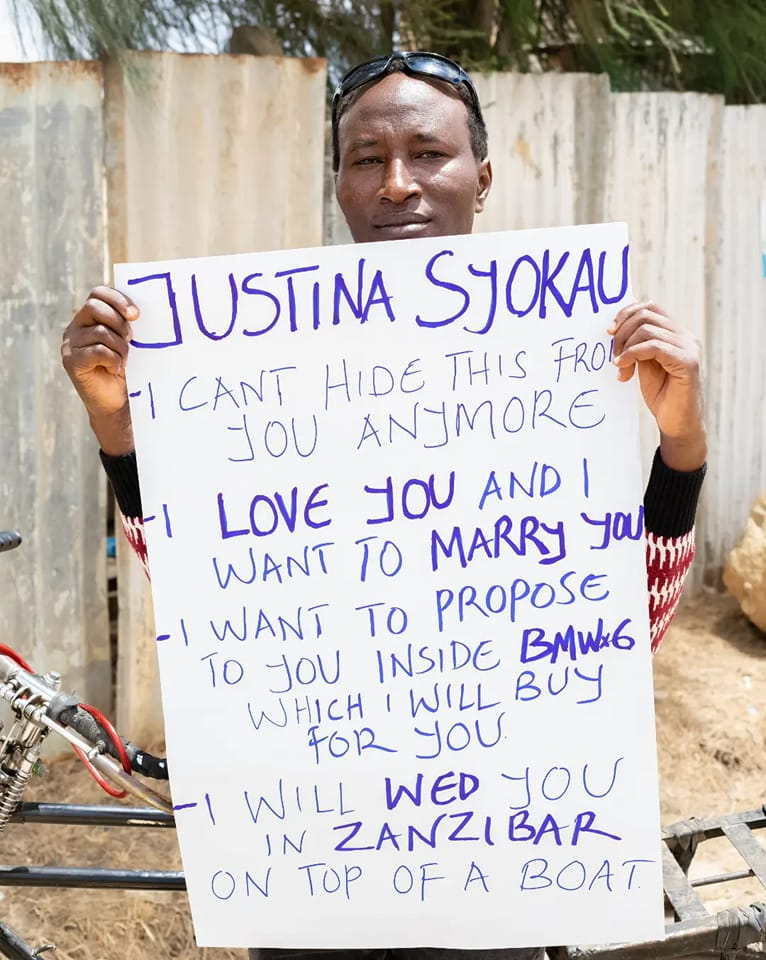 JUSTINA SYOKAU
-I CANT HIDE THIS FROM
YOU ANYMORE
-I LOVE YOU AND I
WANT TO MARRY YOU
-I WANT TO PROPOSE
TO YOU INSIDE BMWX6
WHICH I WILL BUY
FOR YOU.
-I WILL WED YOU
IN ZANZIBAR
ON TOP OF A BOAT.